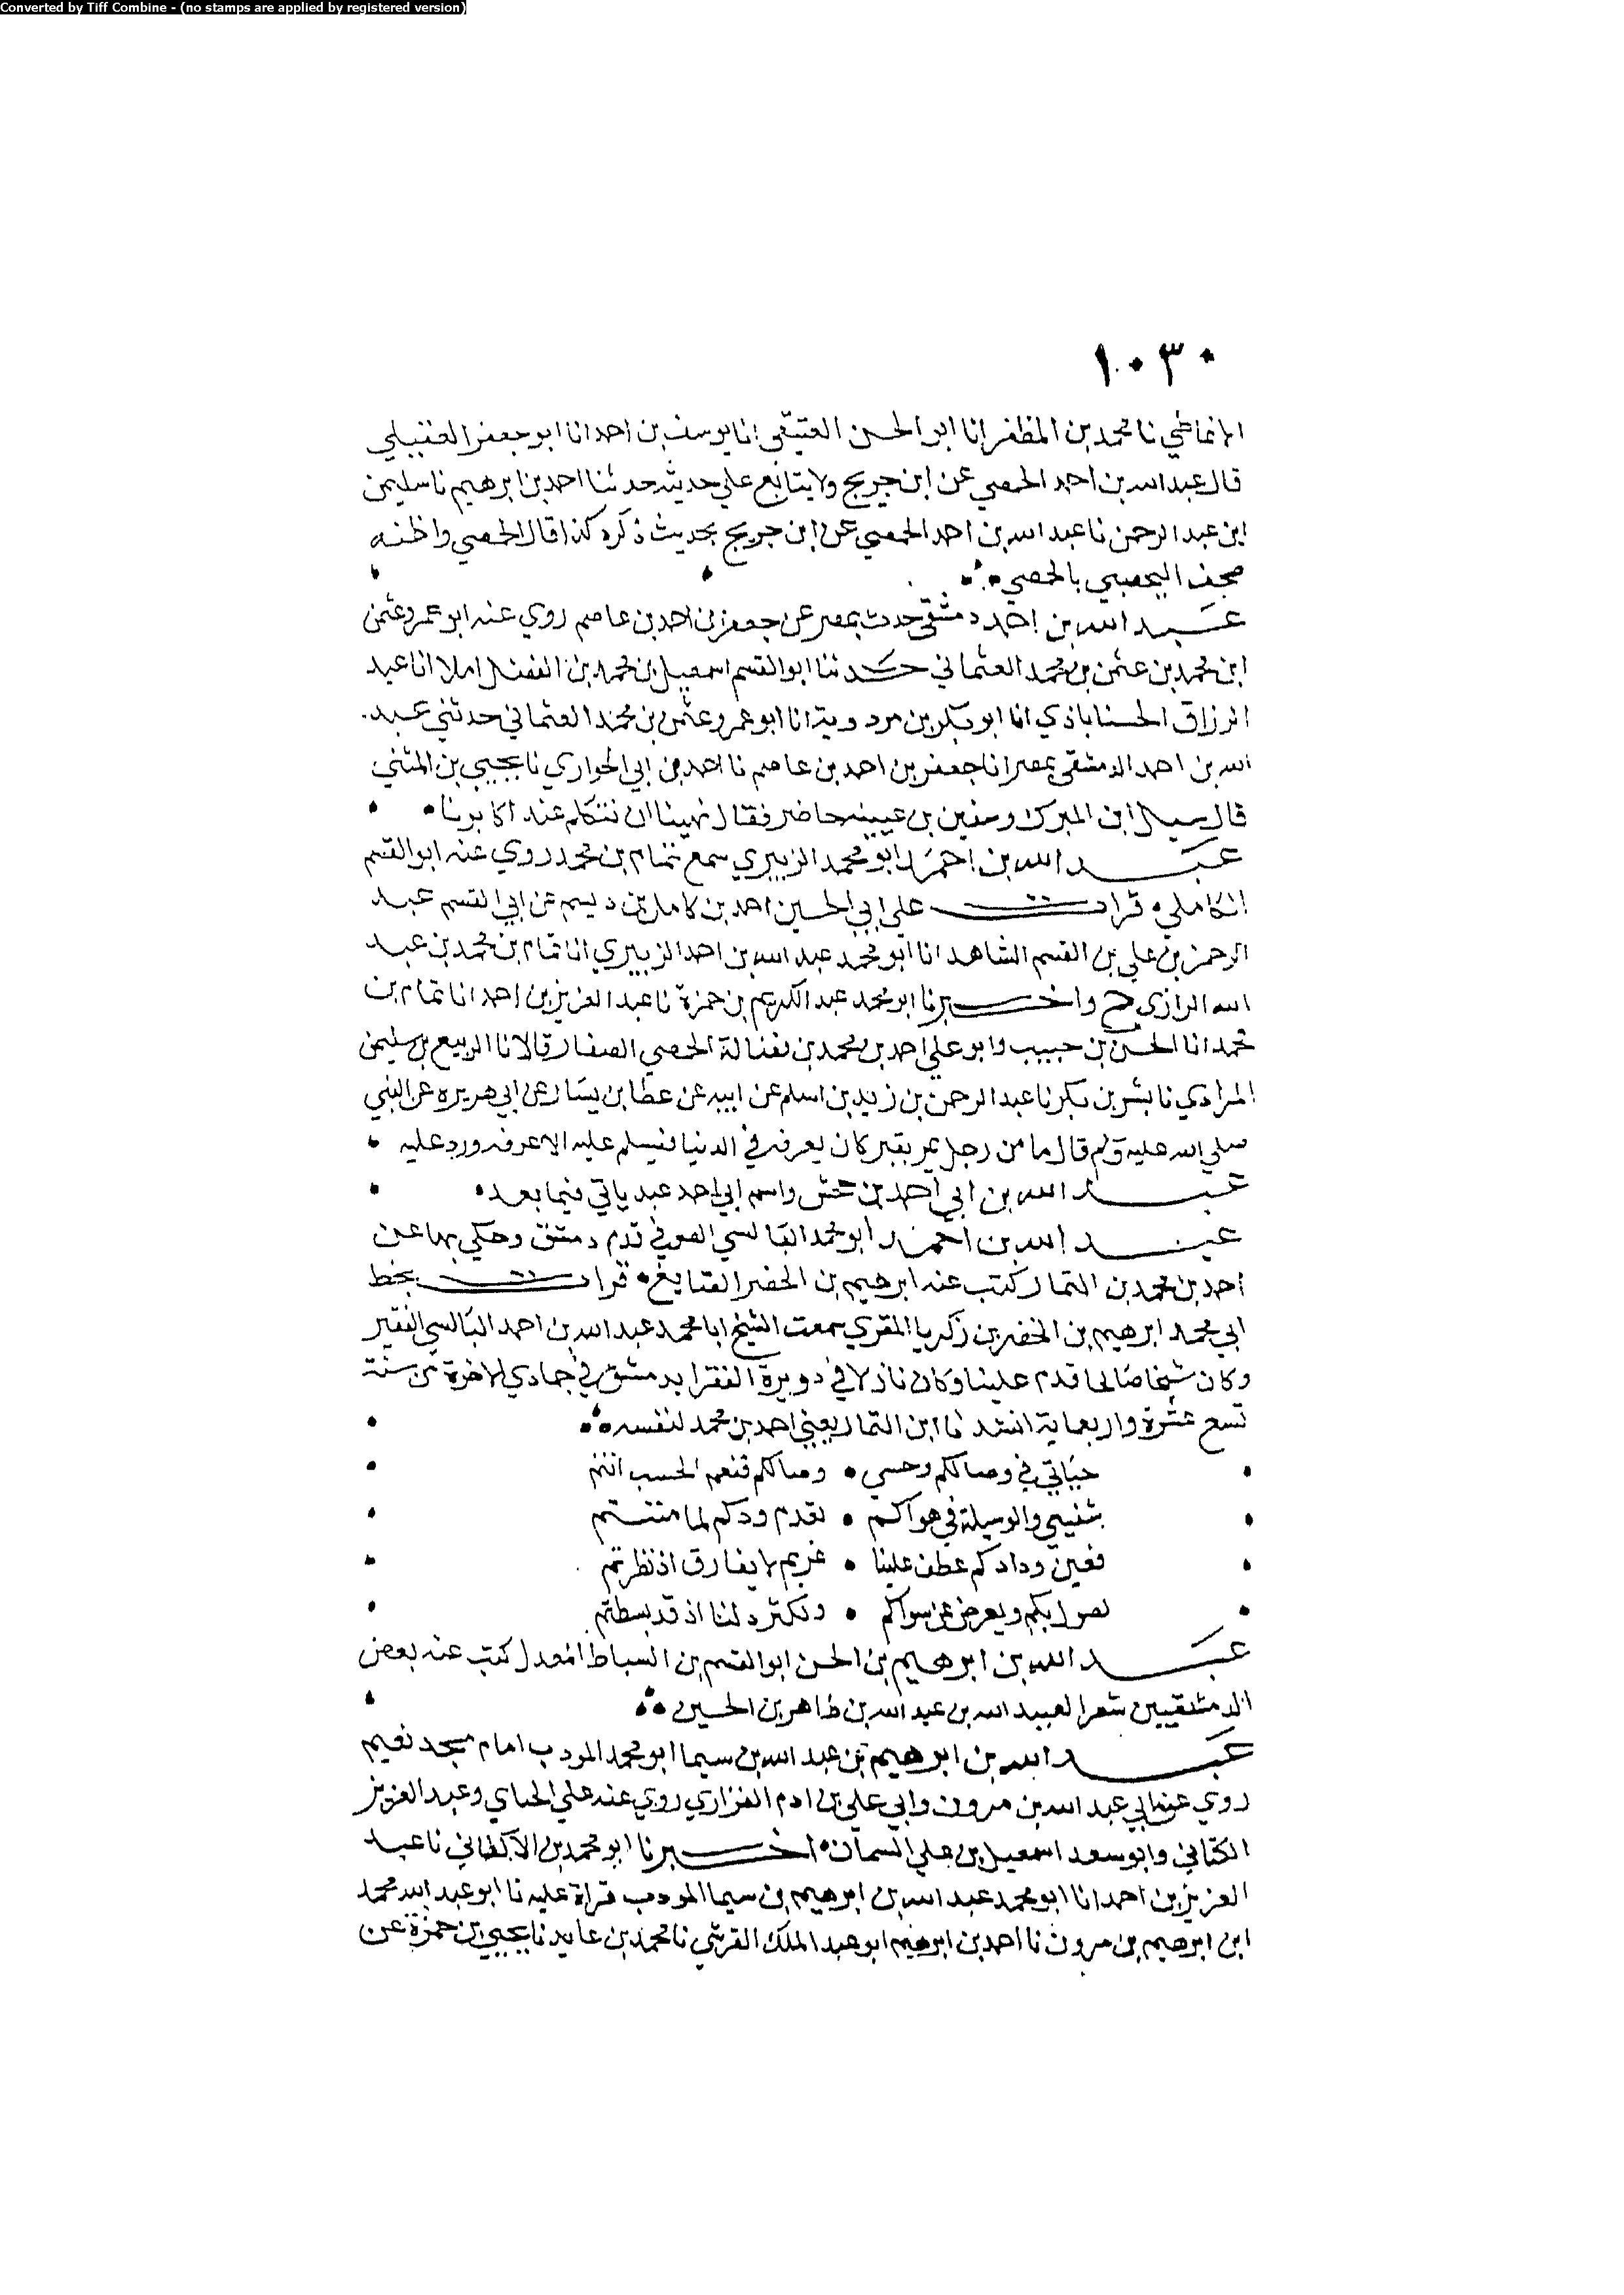 Converted by Tiff Combine - (no stamps are applied by registered version)
١٠٣٠
الانماطي نا محمد بن المظفر انا ابو الحسن العتيقي انا يوسف بن احمد انا ابو جعفر العقيلي
قال عبد الله بن احمد الحمصي عن ابن جريج ولا يتابع علي حديثه حدثنا احمد بن ابرهيم نا سليمن
ابن عبد الرحمن نا عبد الله بن احمد الحمصي عن ابن جريج بحديث ذكره كذا قال الحمصي واظنه
صحف اليحصبي بالحمصي
عبد الله بن احمد دمشقي حدث بمصر عن جعفر بن احمد بن عاصم روي عنه ابو عمرو عثمن
ابن محمد بن عثمن بن محمد العثماني حدثنا ابو القسم اسمعيل بن محمد بن الفضل املا انا عبد
الرزاق الحسناباذي انا ابو بكر بن مردويه انا ابو عمرو عثمن بن محمد العثماني حدثني عبد
الله بن احمد الدمشقي بمصر انا جعفر بن احمد بن عاصم نا احمد بن ابي الحواري نا يحيي بن المثني
قال سيل ابن المبرك وسفين بن عيينه حاضر فقال نهينا ان نتكلم عند اكابرنا
عبد الله بن احمد ابو محمد الزبيري سمع تمام بن محمد روي عنه ابو القسم
الكاملي قرات علي ابي الحسين احمد بن كامل بن ديسم عن ابي القسم عبد
الرحمن بن علي بن القسم الشاهد انا ابو محمد عبد الله بن احمد الزبيري انا تمام بن محمد بن عبد
الله الرازي ح واخبرنا ابو محمد عبد الكريم بن حمزة نا عبد العزيز بن احمد انا تمام بن
محمد انا الحسن بن حبيب وابو علي احمد بن محمد بن فضالة الحمصي الصفار قالا نا الربيع بن سليمن
المرادي نا بشر بن بكر نا عبد الرحمن بن زيد بن اسلم عن ابيه عن عطا بن يسار عن ابي هريره عن النبي
صلي الله عليه وسلم قال ما من رجل يمر بقبر كان يعرفه في الدنيا فيسلم عليه الا عرفه ورد عليه
عبد الله بن ابي احمد بن جحش واسم ابي احمد عبد ياتي فيما بعد
عبد الله بن احمد ابو محمد البالسي الصوفي قدم دمشق وحكي بها عن
احمد بن محمد بن التمار كتب عنه ابرهيم بن الخضر الصايغ قرات بخط
ابي محمد ابرهيم بن الخضر بن زكريا المقري سمعت الشيخ ابا محمد عبد الله بن احمد البالسي الفقير
وكان شيخا صالحا قدم علينا وكان نازلا في دويرة الفقرا بدمشق في جمادي الاخرة من سنة
تسع عشرة واربعماية انشدنا ابن التمار يعني احمد بن محمد لنفسه
حياتي في وصالكم وحسبي • وصالكم فنعم الحسب انتم
شفيعي والوسيلة في هواكم • تقدم ودكم لما مننتم
فعين ودادكم عطف علينا • غريم لا يفارق اذ نظرتم
نصول بكم ويعرض عن سواكم • ونكثر دلنا اذ قد بسطتم
عبد الله بن ابرهيم بن الحسن ابو القسم بن السباط المعدل كتب عنه بعض
الدمشقيين شعرا لعبيد الله بن عبد الله بن طاهر بن الحسين
عبد الله بن ابرهيم بن عبد الله بن سيما ابو محمد المودب امام مسجد نعيم
روي عن ابي عبد الله بن مرون وابي علي بن ادم الفزاري روي عنه علي الحناي وعبد العزيز
الكتاني وابو سعد اسمعيل بن علي السمان اخبرنا ابو محمد بن الاكفاني نا عبد
العزيز بن احمد انا ابو محمد عبد الله بن ابرهيم بن سيما المودب قراة عليه نا ابو عبد الله محمد
ابن ابرهيم بن مرون نا احمد بن ابرهيم ابو عبد الملك القرشي نا محمد بن عايد نا يحيي بن حمزة عن